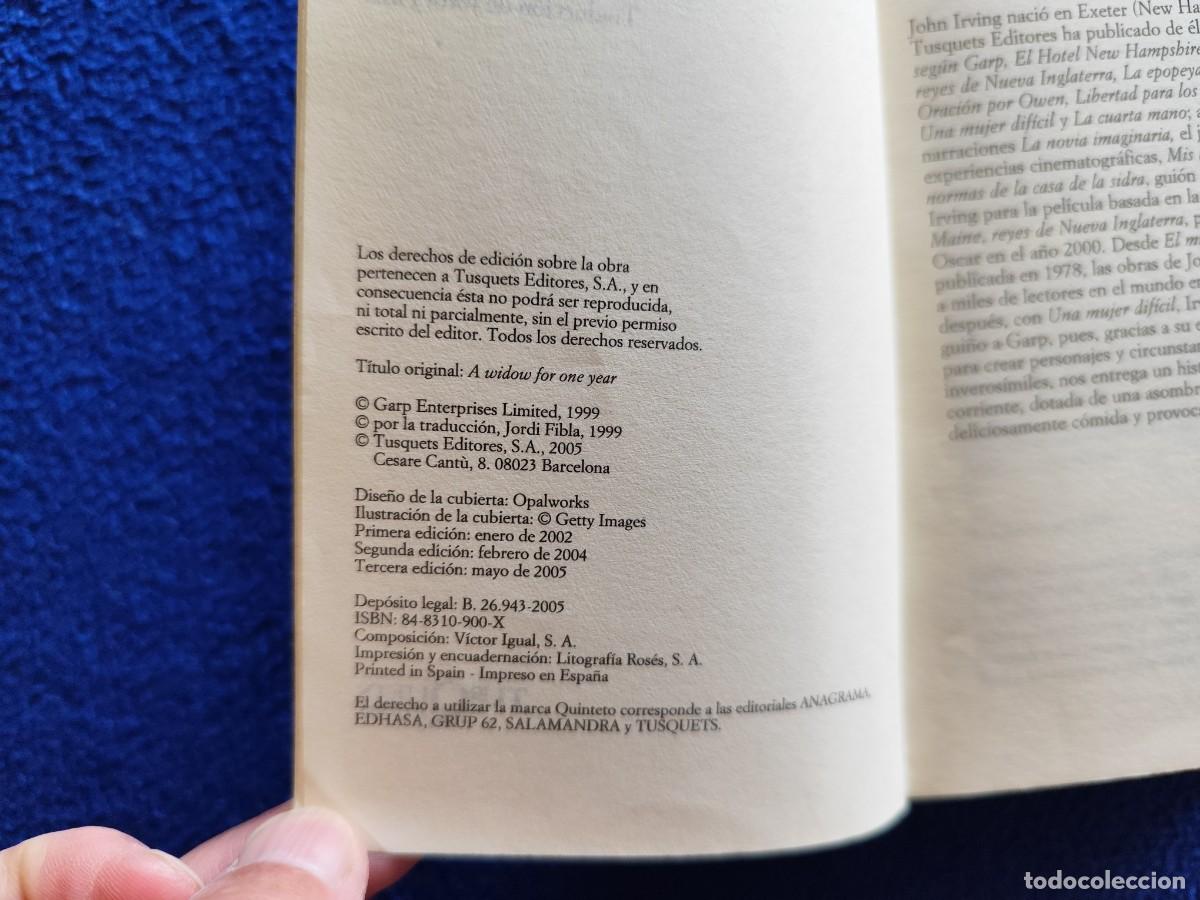 Los derechos de edición sobre la obra
pertenecen a Tusquets Editores, S.A., y en
consecuencia ésta no podrá ser reproducida,
ni total ni parcialmente, sin el previo permiso
escrito del editor. Todos los derechos reservados.
Título original: A widow for one year
© Garp Enterprises Limited, 1999
© por la traducción, Jordi Fibla, 1999
© Tusquets Editores, S.A., 2005
Cesare Cantù, 8. 08023 Barcelona
Diseño de la cubierta: Opalworks
Ilustración de la cubierta: © Getty Images
Primera edición: enero de 2002
Segunda edición: febrero de 2004
Tercera edición: mayo de 2005
Depósito legal: B. 26.943-2005
ISBN: 84-8310-900-X
Composición: Víctor Igual, S. A.
Impresión y encuadernación: Litografía Rosés, S. A.
Printed in Spain - Impreso en España
El derecho a utilizar la marca Quinteto corresponde a las editoriales ANAGRAMA,
EDHASA, GRUP 62, SALAMANDRA y TUSQUETS.
John Irving nació en Exeter (New Ha
Tusquets Editores ha publicado de él
según Garp, El Hotel New Hampshire
reyes de Nueva Inglaterra, La epopeya
Oración por Owen, Libertad para los
Una mujer difícil y La cuarta mano;
narraciones La novia imaginaria, el
experiencias cinematográficas, Mis
normas de la casa de la sidra, guión
Irving para la película basada en la
Maine, reyes de Nueva Inglaterra, p
Oscar en el año 2000. Desde El m
publicada en 1978, las obras de Jo
a miles de lectores en el mundo en
después, con Una mujer difícil, Ir
guiño a Garp, pues, gracias a su
para crear personajes y circunstan
inverosímiles, nos entrega un hist
corriente, dotada de una asombr
deliciosamente cómida y provoca
todocoleccion